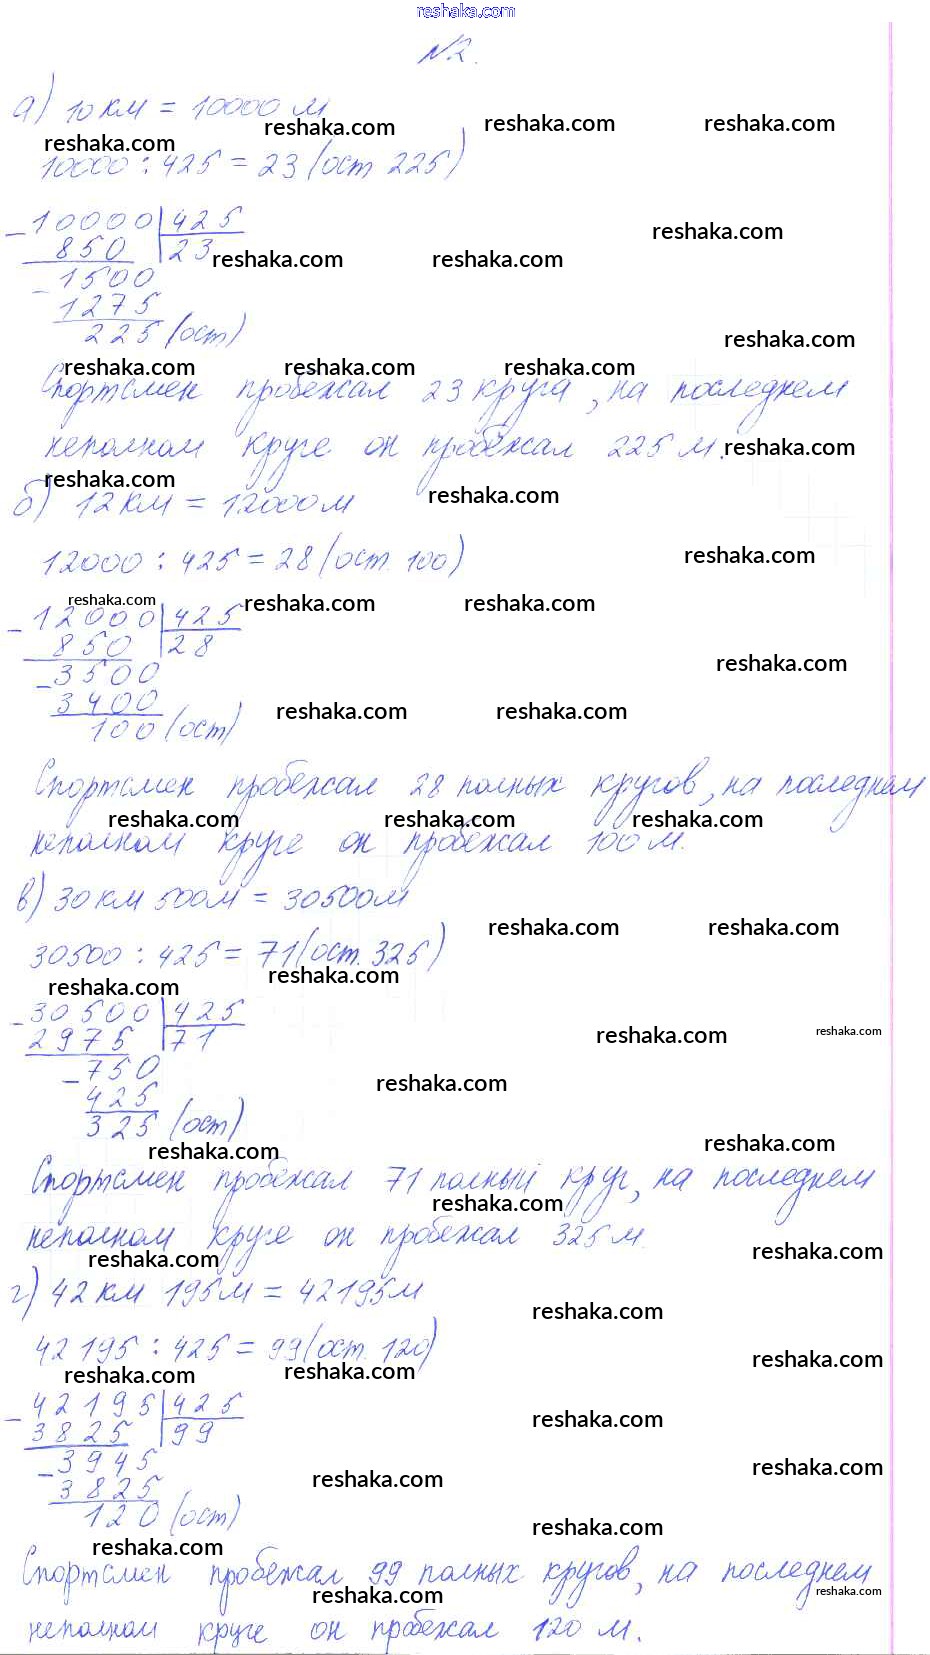 reshaka.com
№2.
а) 10 км = 10000 м
reshaka.com reshaka.com reshaka.com reshaka.com
10000 : 425 = 23 (ост 225)
- 10000 | 425
reshaka.com
850 | 23
reshaka.com reshaka.com
- 1500
1275
225 (ост)
reshaka.com
reshaka.com reshaka.com reshaka.com
Спортсмен пробежал 23 круга, на последнем
неполном круге он пробежал 225 м.
reshaka.com
reshaka.com reshaka.com
б) 12 км = 12000 м
12000 : 425 = 28 (ост. 100)
reshaka.com
reshaka.com reshaka.com reshaka.com
- 12000 | 425
850 | 28
reshaka.com
- 3500
3400
reshaka.com reshaka.com
100 (ост)
Спортсмен пробежал 28 полных кругов, на последнем
reshaka.com reshaka.com reshaka.com
неполном круге он пробежал 100 м.
в) 30 км 500 м = 30500 м
reshaka.com reshaka.com
30500 : 425 = 71 (ост. 325)
reshaka.com reshaka.com
- 30500 | 425
2975 | 71
reshaka.com reshaka.com
- 750
reshaka.com
425
325 (ост)
reshaka.com reshaka.com
Спортсмен пробежал 71 полный круг, на последнем
reshaka.com
неполном круге он пробежал 325 м.
reshaka.com reshaka.com
г) 42 км 195 м = 42195 м
reshaka.com
42195 : 425 = 99 (ост. 120)
reshaka.com reshaka.com reshaka.com
- 42195 | 425
3825 | 99
reshaka.com
- 3945
reshaka.com reshaka.com
3825
120 (ост)
reshaka.com reshaka.com
Спортсмен пробежал 99 полных кругов, на последнем
reshaka.com reshaka.com
неполном круге он пробежал 120 м.